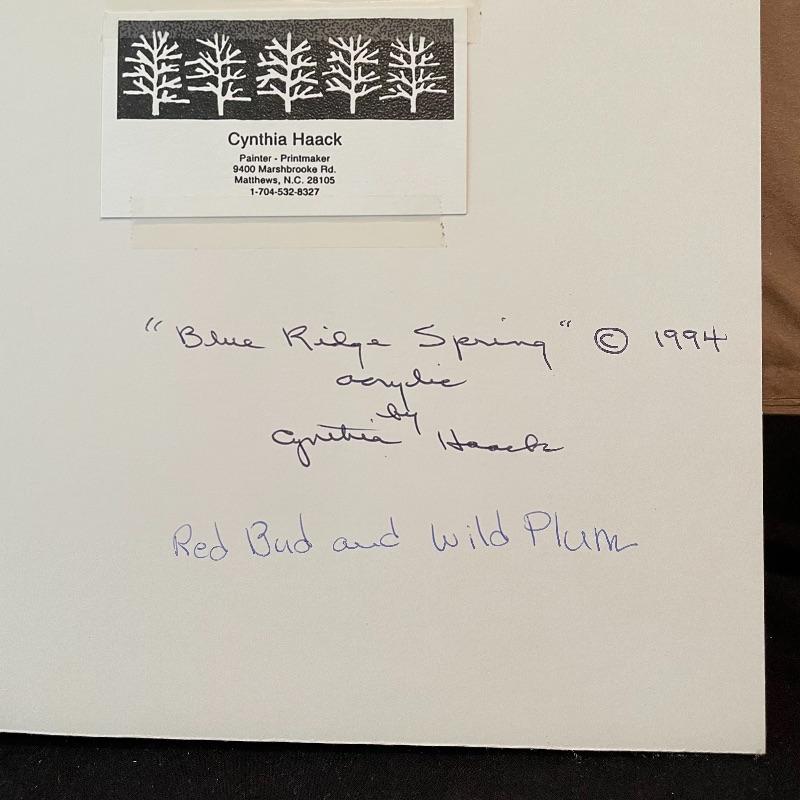 Cynthia Haack
Painter - Printmaker
9400 Marshbrooke Rd.
Matthews, N.C. 28105
1-704-532-8327
"Blue Ridge Spring" © 1994
acrylic
by
Cynthia Haack
Red Bud and Wild Plum